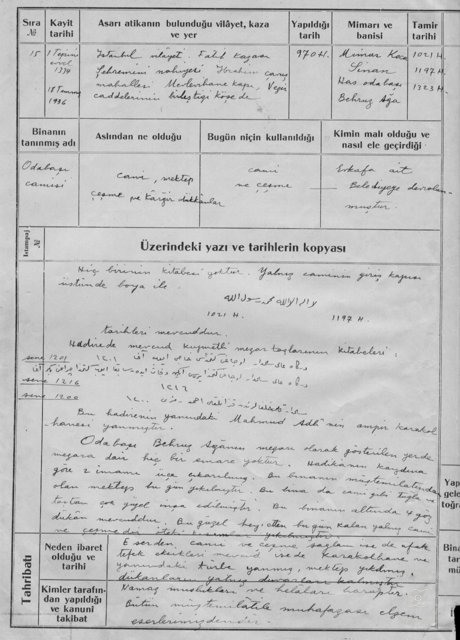 Sıra № Kayit tarihi Asarı atikanın bulunduğu vilâyet, kaza ve yer Yapıldığı tarih Mimarı ve banisi Tamir tarihi
15 1 Teşrini evvel 1334 18 Temmuz 1936
İstanbul vilâyeti Fatih kazası
Şehremini nahiyesi İbrahim çavuş
mahallesi Mevlevihane kapı, Vezir
caddelerinin birleştiği köşede
970 H.
Mimar Koca
Sinan
Has odabaşı
Behruz Ağa
1021 H.
1197 H.
1323 H.
Binanın tanınmış adı Aslından ne olduğu Bugün niçin kullanıldığı Kimin malı olduğu ve nasıl ele geçirdiği
Odabaşı
camisi
cami, mektep
çeşme ve kârgir dükkânlar
cami
ve çeşme
Evkafa ait
Belediyeye devrolun-
muştur.
İstampaj №
Üzerindeki yazı ve tarihlerin kopyası
Hiç birinin kitabesi yoktur. Yalnız caminin giriş kapısı
üstünde boya ile
لا اله الا الله محمد رسول الله
1021 H. 1197 H.
tarihleri mevcuddur.
Hadirede mevcud kıymetli mezar taşlarının kitabeleri:
sene 1201 ١٢٠١
sene 1216 ١٢١٦
sene 1200 ١٢٠٠
Bu hadirenin yanındaki Mahmud Adlî'nin ampir karakol-
hanesi yanmıştır.
Odabaşı Behruz Ağanın mezarı olarak gösterilen yerde
mezara dair hiç bir emare yoktur. Hadikanın kaydına
göre 2 imamı üçe çıkarılmış. Bu binanın müştemilatından
olan mektep bu gün yıkılmıştır. Bu bina da cami gibi tuğla ve
taştan çok güzel inşa edilmiştir. Bu binanın altında 4 göz
dükân mevcuddur. Bu güzel heyetten bu gün kalan yalnız cami
ve çeşmedir
Tahribatı
Neden ibaret olduğu ve tarihi
Eserden cami ve çeşme sağlam ise de ufak
tefek eksikleri mevcud ise de karakolhane ve
yanındaki türbe yanmış, mektep yıkılmış,
dükanların yalnız duvarları kalmıştır
Kimler tarafından yapıldığı ve kanunî takibat
Namaz muslukları ve helaları haraptır.
Bütün müştemilatile muhafazası elzem
eserlerimizdendir.